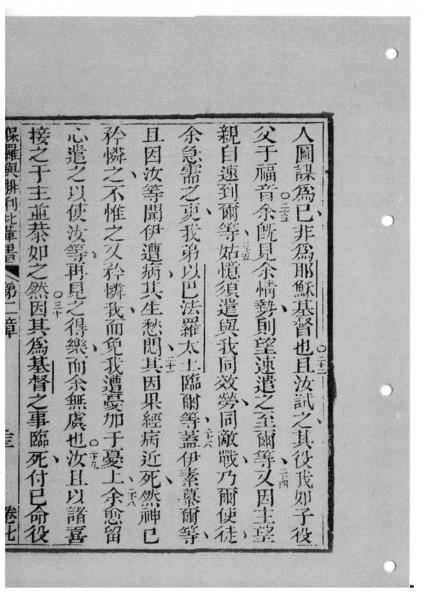 人圖謀為己非為耶穌基督也且汝試之其役我如子役
父于福音余既見余情勢則望速遣之至爾等又因主望
親自速到爾等姑憶須遣與我同效勞同敵戰乃爾使徒
余急需之吏我弟以巴法羅太土臨爾等蓋伊素慕爾等
且因汝等聞伊遭病其生愁悶其因果經病近死然神已
矜憐之不惟之又矜憐我而免我遭憂加于憂上余愈留
心遣之以使汝等再見之得樂而余無虞也汝且以諸喜
接之于主並恭如之然因其為基督之事臨死付己命役
保羅與腓利比輩書 第二章 三 卷七